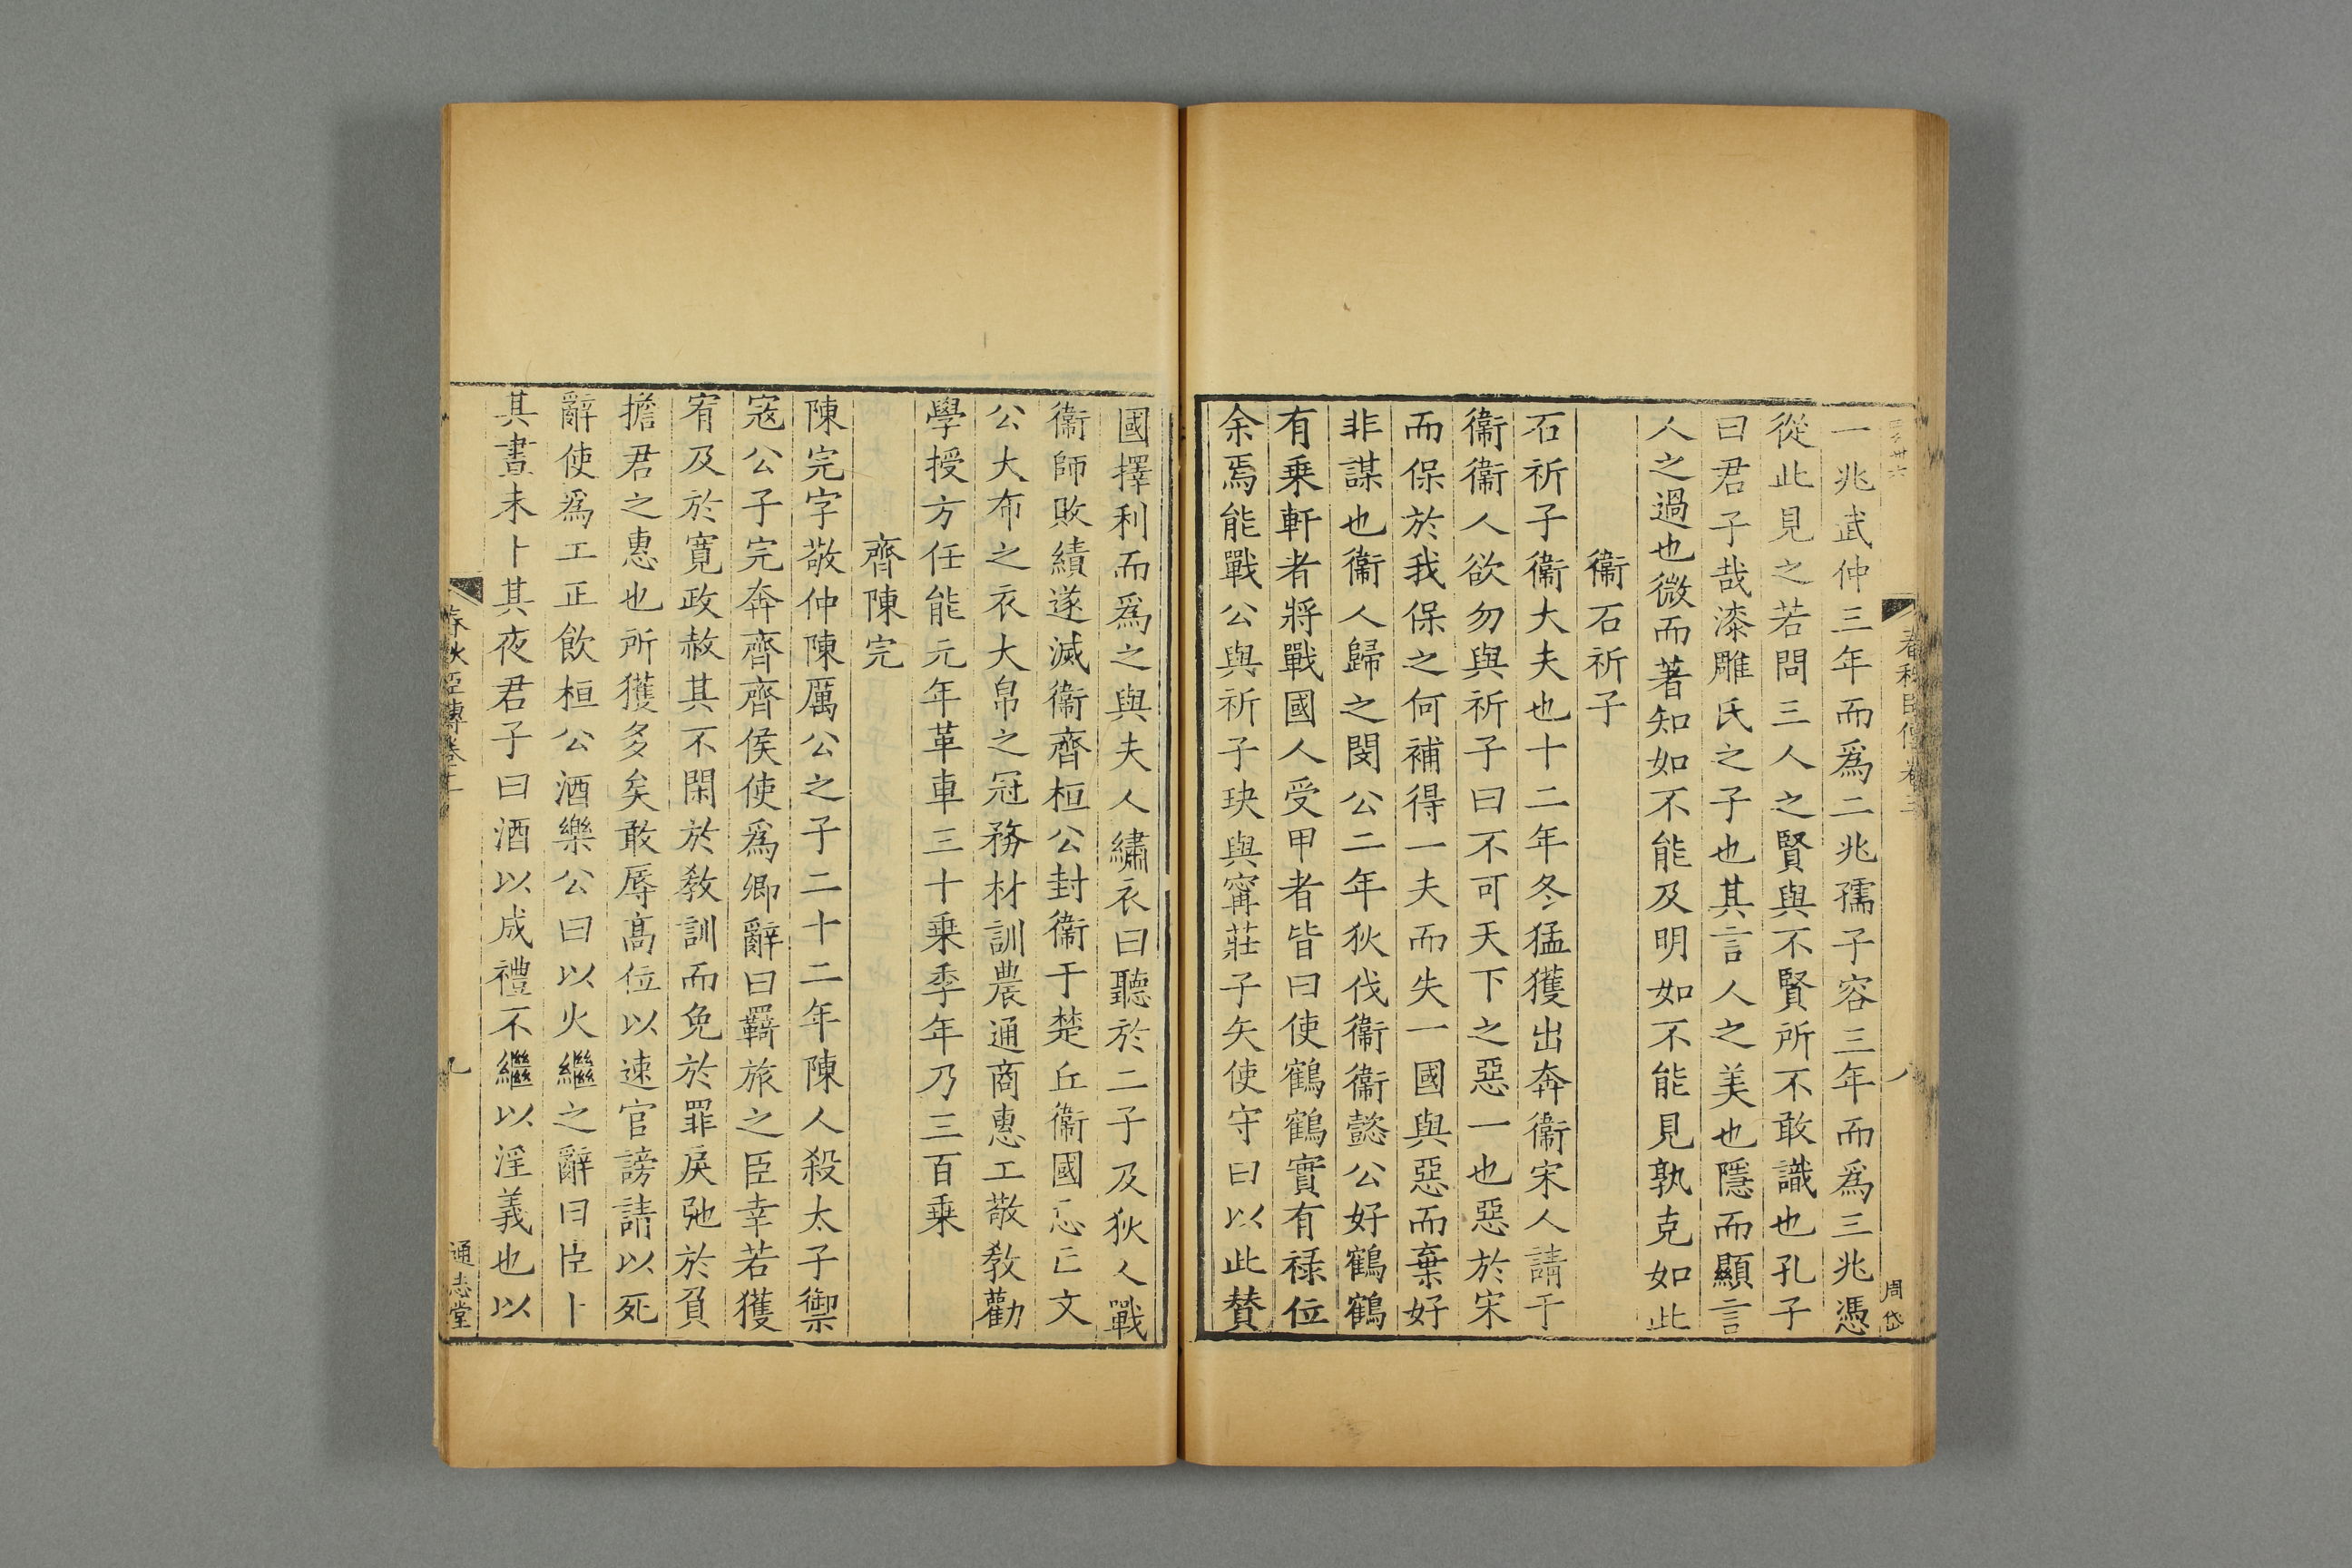 一兆武仲三年而爲二兆孺子容三年而爲三兆憑
從此見之若問三人之賢與不賢所不敢識也孔子
曰君子哉漆雕氏之子也其言人之美也隱而顯言
人之過也微而著知如不能及明如不能見孰克如此
衞石祈子
石祈子衞大夫也十二年冬猛獲出奔衞宋人請于
衞衞人欲勿與祈子曰不可天下之惡一也惡於宋
而保於我保之何補得一夫而失一國與惡而棄好
非謀也衞人歸之閔公二年狄伐衞衞懿公好鶴鶴
有乗軒者將戰國人受甲者皆曰使鶴鶴實有禄位
余焉能戰公與祈子玦與寗莊子矢使守曰以此賛
春秋臣傳卷二
八
周岱
國擇利而爲之與夫人繡衣曰聽於二子及狄人戰
衞師敗績遂滅衞齊桓公封衞于楚丘衞國忘亡文
公大布之衣大帛之冠務材訓農通商惠工敬敎勸
學授方任能元年革車三十乗季年乃三百乗
齊陳完
陳完字敬仲陳厲公之子二十二年陳人殺太子禦
寇公子完奔齊齊侯使爲卿辭曰羇旅之臣幸若獲
宥及於寛政赦其不閑於敎訓而免於罪戾弛於負
擔君之惠也所獲多矣敢辱髙位以速官謗請以死
辭使爲工正飲桓公酒樂公曰以火繼之辭曰臣卜
其晝未卜其夜君子曰酒以成禮不繼以淫義也以
春秋臣傳卷二
九
通志堂